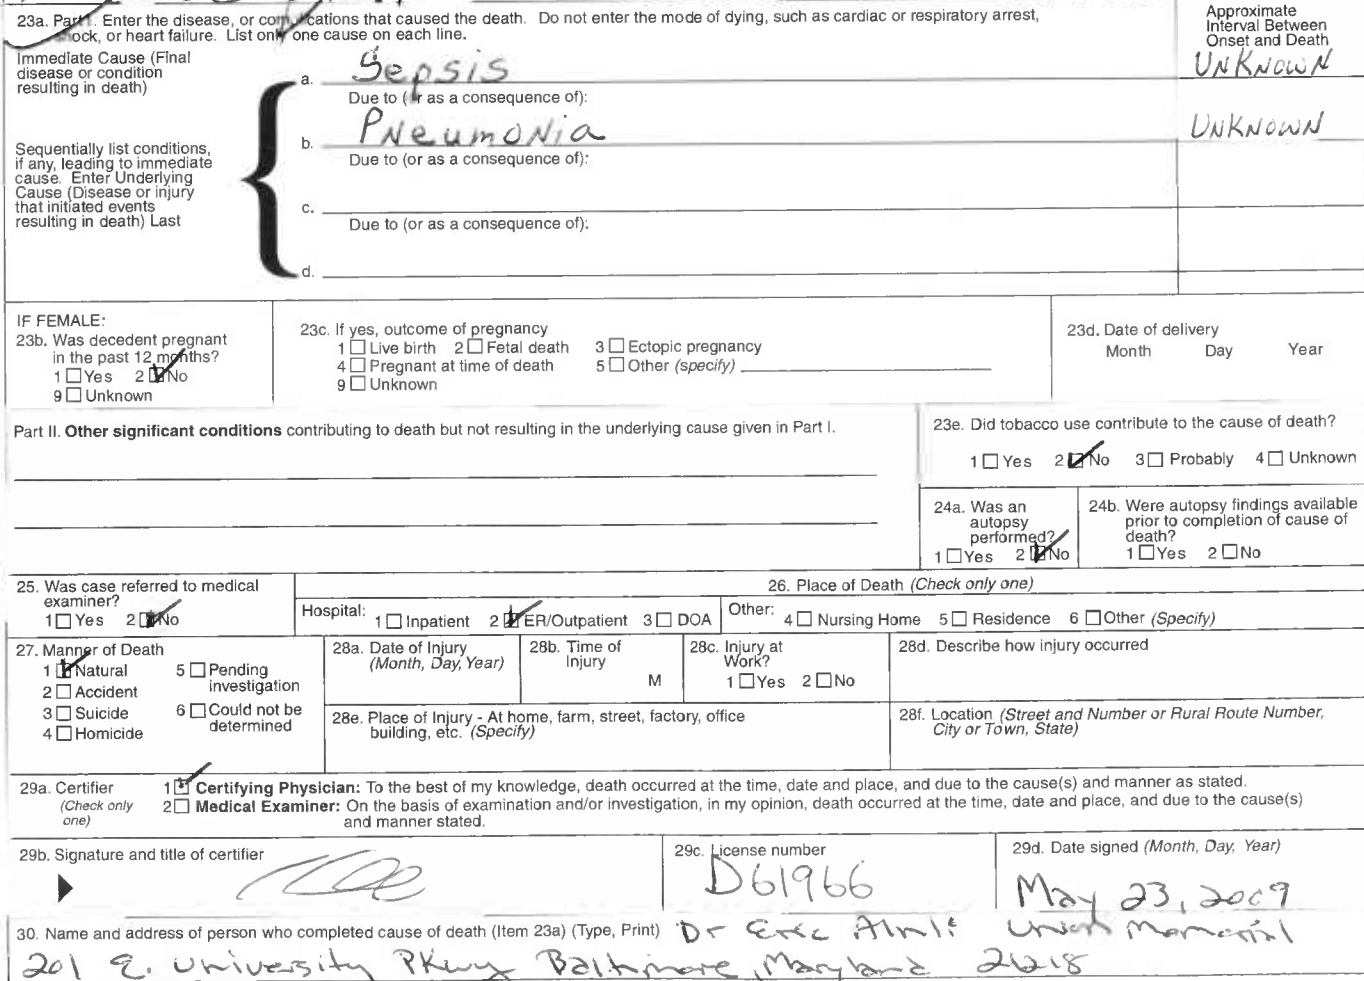 23a. Part I. Enter the disease, or complications that caused the death. Do not enter the mode of dying, such as cardiac or respiratory arrest,
shock, or heart failure. List only one cause on each line.
Approximate
Interval Between
Onset and Death
Immediate Cause (Final
disease or condition
resulting in death)
a. Sepsis
UNKNOWN
Due to (or as a consequence of):
Sequentially list conditions,
if any, leading to immediate
cause. Enter Underlying
Cause (Disease or injury
that initiated events
resulting in death) Last
b. PNeumoNia
UNKNOWN
Due to (or as a consequence of):
c.
Due to (or as a consequence of):
d.
IF FEMALE:
23b. Was decedent pregnant
in the past 12 months?
1 Yes 2 No
9 Unknown
23c. If yes, outcome of pregnancy
1 Live birth 2 Fetal death 3 Ectopic pregnancy
4 Pregnant at time of death 5 Other (specify)
9 Unknown
23d. Date of delivery
Month Day Year
Part II. Other significant conditions contributing to death but not resulting in the underlying cause given in Part I.
23e. Did tobacco use contribute to the cause of death?
1 Yes 2 No 3 Probably 4 Unknown
24a. Was an
autopsy
performed?
1 Yes 2 No
24b. Were autopsy findings available
prior to completion of cause of
death?
1 Yes 2 No
25. Was case referred to medical
examiner?
1 Yes 2 No
26. Place of Death (Check only one)
Hospital: 1 Inpatient 2 ER/Outpatient 3 DOA
Other: 4 Nursing Home 5 Residence 6 Other (Specify)
27. Manner of Death
1 Natural 5 Pending
investigation
2 Accident
3 Suicide 6 Could not be
determined
4 Homicide
28a. Date of Injury
(Month, Day, Year)
28b. Time of
Injury
M
28c. Injury at
Work?
1 Yes 2 No
28d. Describe how injury occurred
28e. Place of Injury - At home, farm, street, factory, office
building, etc. (Specify)
28f. Location (Street and Number or Rural Route Number,
City or Town, State)
29a. Certifier
(Check only
one)
1 Certifying Physician: To the best of my knowledge, death occurred at the time, date and place, and due to the cause(s) and manner as stated.
2 Medical Examiner: On the basis of examination and/or investigation, in my opinion, death occurred at the time, date and place, and due to the cause(s)
and manner stated.
29b. Signature and title of certifier
29c. License number
D61966
29d. Date signed (Month, Day, Year)
May 23, 2009
30. Name and address of person who completed cause of death (Item 23a) (Type, Print) Dr Eric Union Memorial
201 E. University Pkwy Baltimore, Maryland